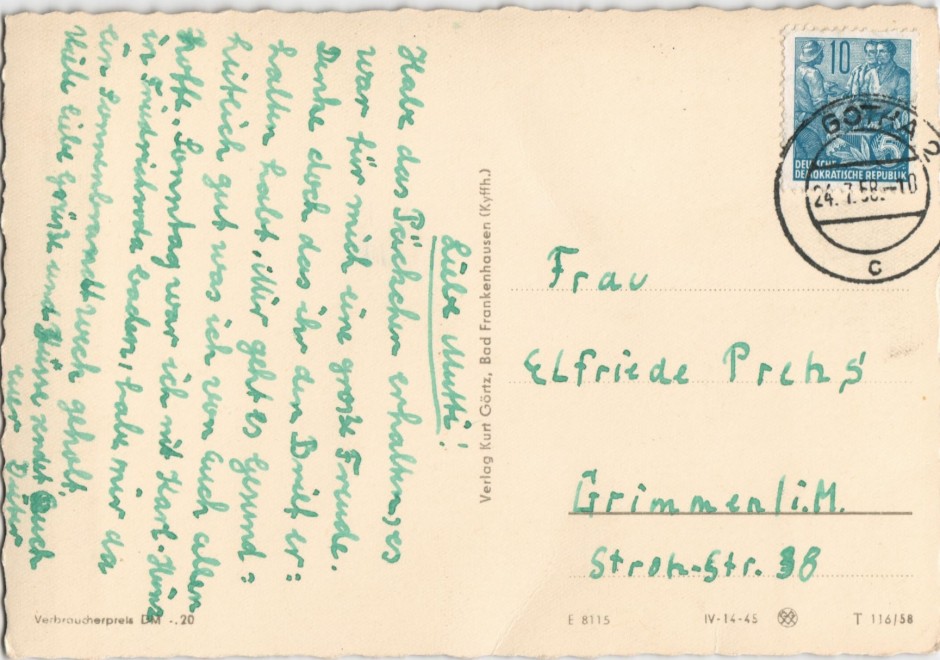 Liebe Mutti!
Habe das Päckchen erhalten, es
war für mich eine große Freude.
Denke doch das ihr den Brief er=
halten habt. Mir geht es Gesund=
heitlich gut was ich von euch allen
hoffe. Sonntag war ich mit Karl-Heinz
in Friedrichroda baden, habe mir da
ein Sonnenbrand weck geholt.
Viele liebe Grüße und Küsse sendet Euch
euer Dieter
Verlag Kurt Görtz, Bad Frankenhausen (Kyffh.)
10
DEUTSCHE
DEMOKRATISCHE REPUBLIK
GOTHA 2
24.7.58.-10
c
Frau
Elfriede Prehs
Grimmen/i.M.
Stroh-Str. 38
Verbraucherpreis DM -.20
E 8115
IV-14-45
T 116/58